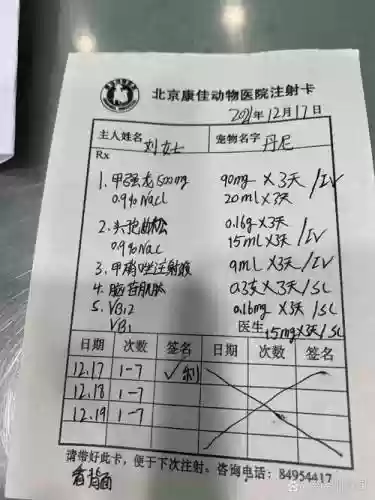 北京康佳动物医院注射卡
2021年12月17日
主人姓名 刘女士 宠物名字 丹尼
Rx
1. 甲强龙500mg 90mg×3天/IV
0.9%NaCl 20ml×3天
2. 头孢曲松 0.16g×3天/IV
0.9%NaCl 15ml×3天
3. 甲硝唑注射液 9ml×3天/IV
4. 脑苷肌肽 0.3支×3天/SC
5. VB12 0.16mg×3天/SC
VB1 医生 15mg×3天/SC
日期 次数 签名 日期 次数 签名
12.17 1-7 ✓
12.18 1-7
12.19 1-7
请带好此卡，便于下次注射。咨询电话：84954417
看背面